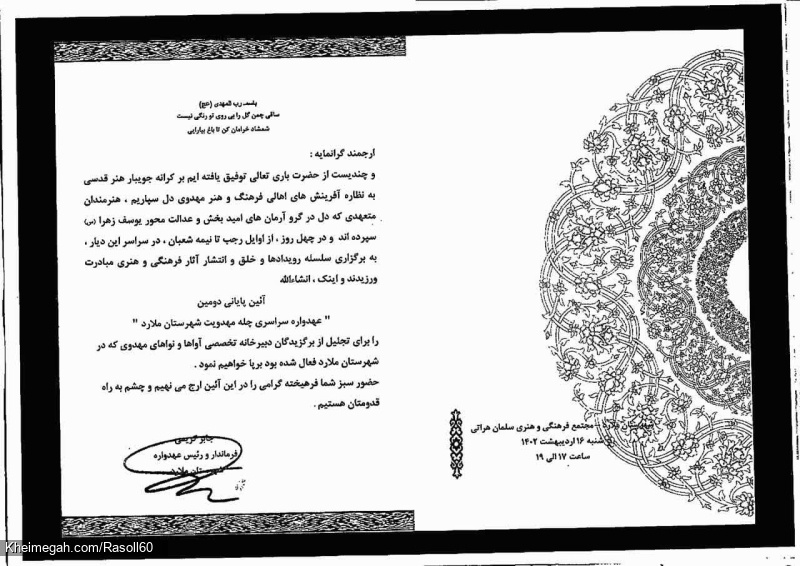 باسمه رب المهدی (عج)
ساقی چمن گل را بی روی تو رنگی نیست
شمشاد خرامان کن تا باغ بیارایی
ارجمند گرانمایه :
و چندیست از حضرت باری تعالی توفیق یافته ایم بر کرانه جویبار هنر قدسی
به نظاره آفرینش های اهالی فرهنگ و هنر مهدوی دل سپاریم ، هنرمندان
متعهدی که دل در گرو آرمان های امید بخش و عدالت محور یوسف زهرا (س)
سپرده اند و در چهل روز ، از اوایل رجب تا نیمه شعبان ، در سراسر این دیار ،
به برگزاری سلسله رویدادها و خلق و انتشار آثار فرهنگی و هنری مبادرت
ورزیدند و اینک ، انشاءالله
آئین پایانی دومین
" عهدواره سراسری چله مهدویت شهرستان ملارد "
را برای تجلیل از برگزیدگان دبیرخانه تخصصی آواها و نواهای مهدوی که در
شهرستان ملارد فعال شده بود برپا خواهیم نمود .
حضور سبز شما فرهیخته گرامی را در این آئین ارج می نهیم و چشم به راه
قدومتان هستیم .
جابر کریمی
فرماندار و رئیس عهدواره
شهرستان ملارد
ملارد - مجتمع فرهنگی و هنری سلمان هراتی
شنبه ۱۶ اردیبهشت ۱۴۰۲
ساعت ۱۷ الی ۱۹
Kheimegah.com/Rasoll60